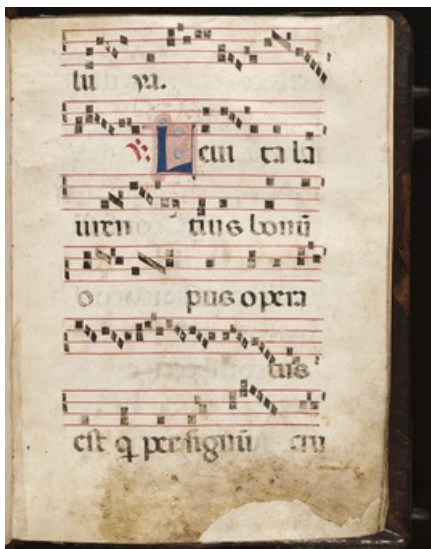 lu ya.
℣. Leui ta la
uren tius bonū
o pus opera
tus
est q̄ per signū cru